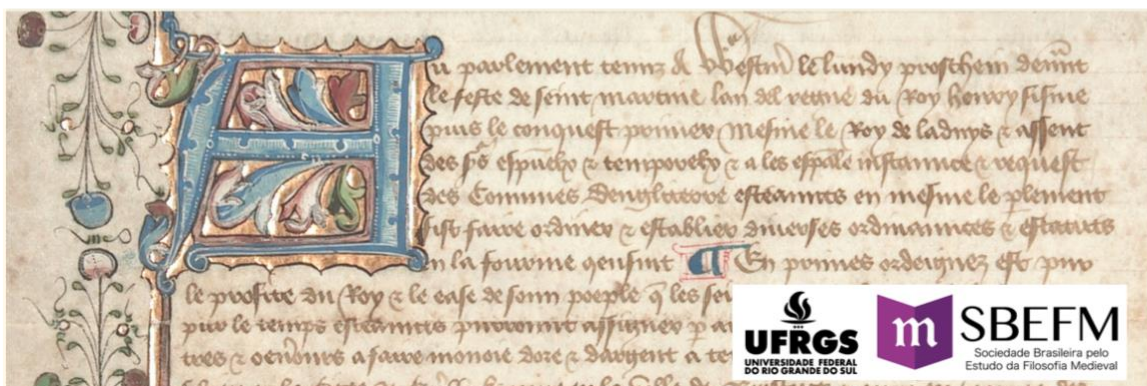 Au parlement tenuz a Westm le lundy proschein deunt
le feste de seint martine lan del regne du Roy henry sisme
puis le conquest primer Mesme le Roy de ladvys & assent
des srs espuelx & temporelx & a les espale instannce & request
des Communes Dengleterre esteantes en mesme le plement
fist faire ordiner & establier diuerses ordinannces & estatutz
en la fourme qensuit ¶ En primes ordeignez est pur
le profite du Roy & le ease de soun poeple q les sei
pur le temps esteantes purront assigner p
tres & a faire monoie dore & dargent a te
UFRGS
UNIVERSIDADE FEDERAL
DO RIO GRANDE DO SUL
m SBEFM
Sociedade Brasileira pelo
Estudo da Filosofia Medieval